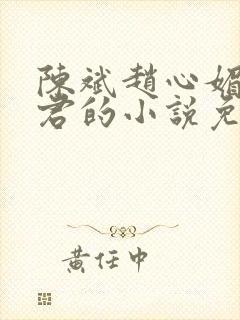 陳斌趙心媚
君的小說免
黃任中